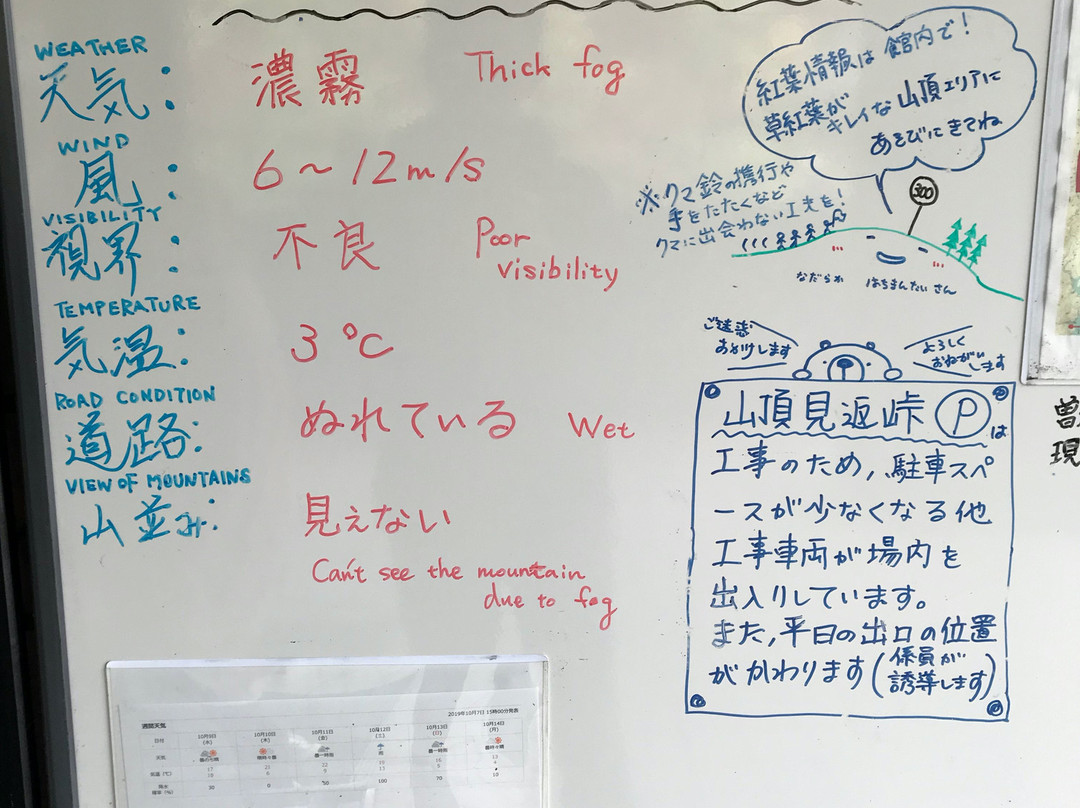 WEATHER
天気: 濃霧 Thick fog
WIND
風: 6～12m/s
VISIBILITY
視界: 不良 Poor
visibility
TEMPERATURE
気温: 3℃
ROAD CONDITION
道路: ぬれている Wet
VIEW OF MOUNTAINS
山並み: 見えない
Can't see the mountain
due to fog
紅葉情報は館内で!
草紅葉が
キレイな山頂エリアに
あそびにきてね
300
※クマ鈴の携行や
手をたたくなど
クマに出会わない工夫を!
なだらか はちまんたいさん
ご迷惑
おかけします
よろしく
おねがい
します
山頂見返峠Ⓟは
工事のため,駐車スペ
ースが少なくなる他
工事車両が場内を
出入りしています。
また,平日の出口の位置
がかわります(係員が
誘導します)
週間天気
2019年10月7日 15時00分発表
日付 10月9日 10月10日 10月11日 10月12日 10月13日 10月14日
(水) (木) (金) (土) (日) (月)
天気
気温(℃)
降水
確率(%) 30 0 50 100 70 10
現